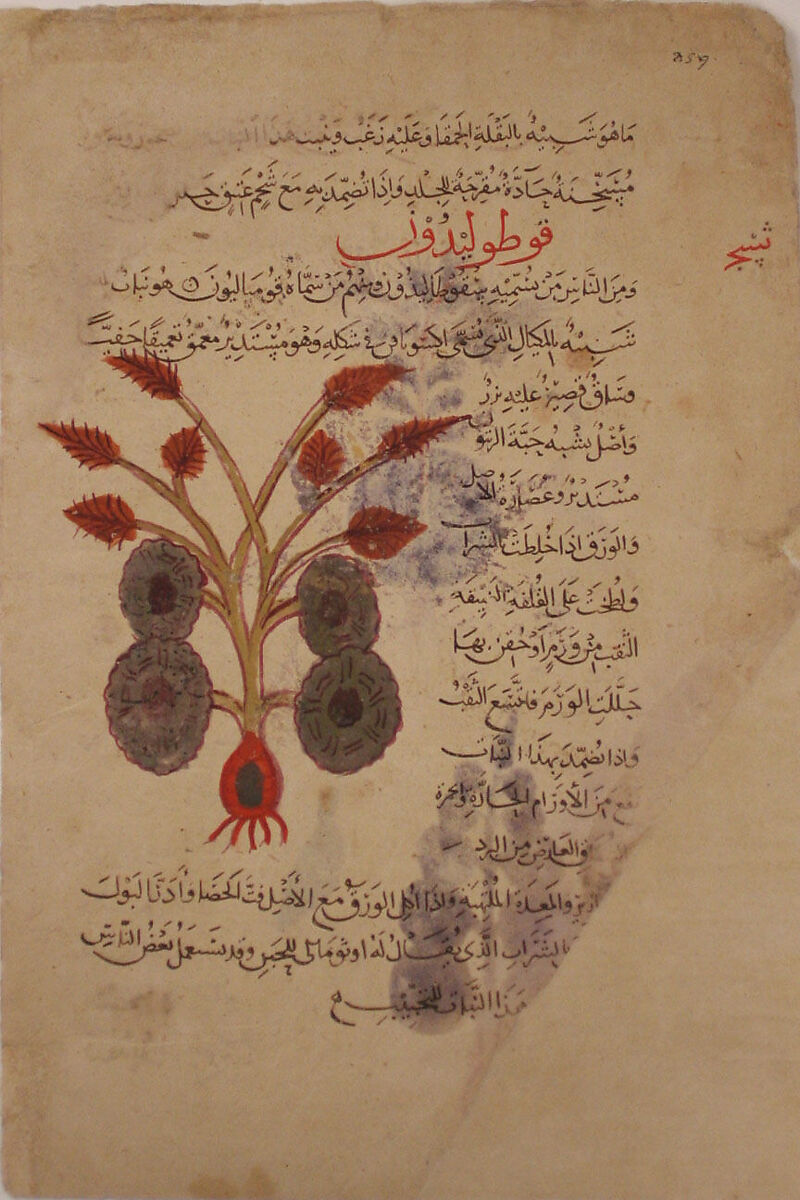 ما هو شبيه بالبقلة الحمقا وعليه زغب وينبت هذا النبات
مسخنة حادة مقرحة للجلد واذا تضمد به مع شحم عتيق
قوطوليدون
ومن الناس من يسميه ومنهم من سماه قومباليون هو نبات
شبيه بالمكيال الذي يسمى اكسوبافن في شكله وهو مستدير معمق تعميقا خفيا
وساق قصيرة عليه بزر
وأصل يشبه حبة الزيتون
مستدير وعصارة الاصل
والورق اذا خلطت بالشراب
ولطخت على القلفة الضيقة
الثقب من ورم او حقن بها
حللت الورم فاتسع الثقب
واذا تضمد بهذا النبات
من الأورام الحارة والحمرة
العارض من البرد
والمعدة الملتهبة واذا اكل الورق مع الأصل فتت الحصا وأدر البول
بالشراب الذي يقال له اونومالي للحبن وقد يستعمل بعض الناس
هذا النبات للتحبيب